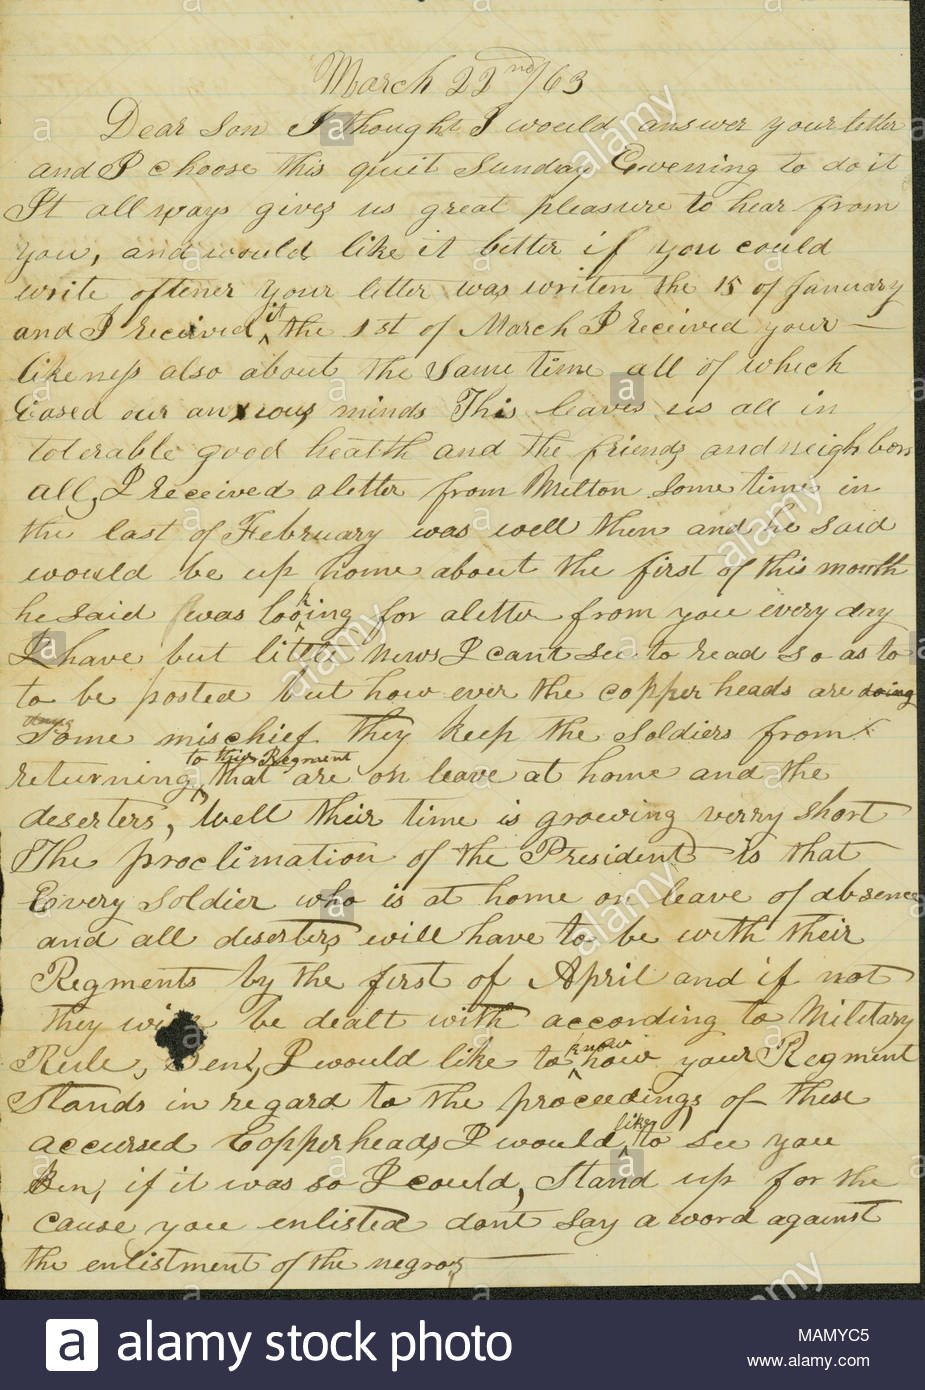 March 22nd/63
Dear Son I thought I would answer your letter
and I choose this quiet Sunday Evvening to do it
It allways gives us great pleasure to hear from
you, and would like it better if you could
write oftener your letter was writen the 15 of January
and I received it the 1st of March I received your
likeness also about the same time all of which
Eased our anxious minds This leaves us all in
tolerable good health and the friends and neighbors
all, I received a letter from Milton some time in
the last of February was well then and he said
would be up home about the first of this month
he said was looking for a letter from you every day
I have but little news I cant see to read so as to
to be posted but how ever the copper heads are doing
doing
Some mischief they keep the soldiers from
returning to their Regment that are on leave at home and the
deserters, Well their time is growing verry short
The proclimation of the President is that
Every soldier who is at home on leave of absence
and all deserters will have to be with their
Regments by the first of April and if not
they will be dealt with according to Military
Rule, Ben, I would like to know how your Regment
Stands in regard to the proceedings of these
accursed Copperheads, I would like to see you
Ben, if it was so I could, Stand up for the
cause you enlisted dont say a word against
the enlistment of the negros
alamy
a alamy stock photo
MAMYC5
www.alamy.com